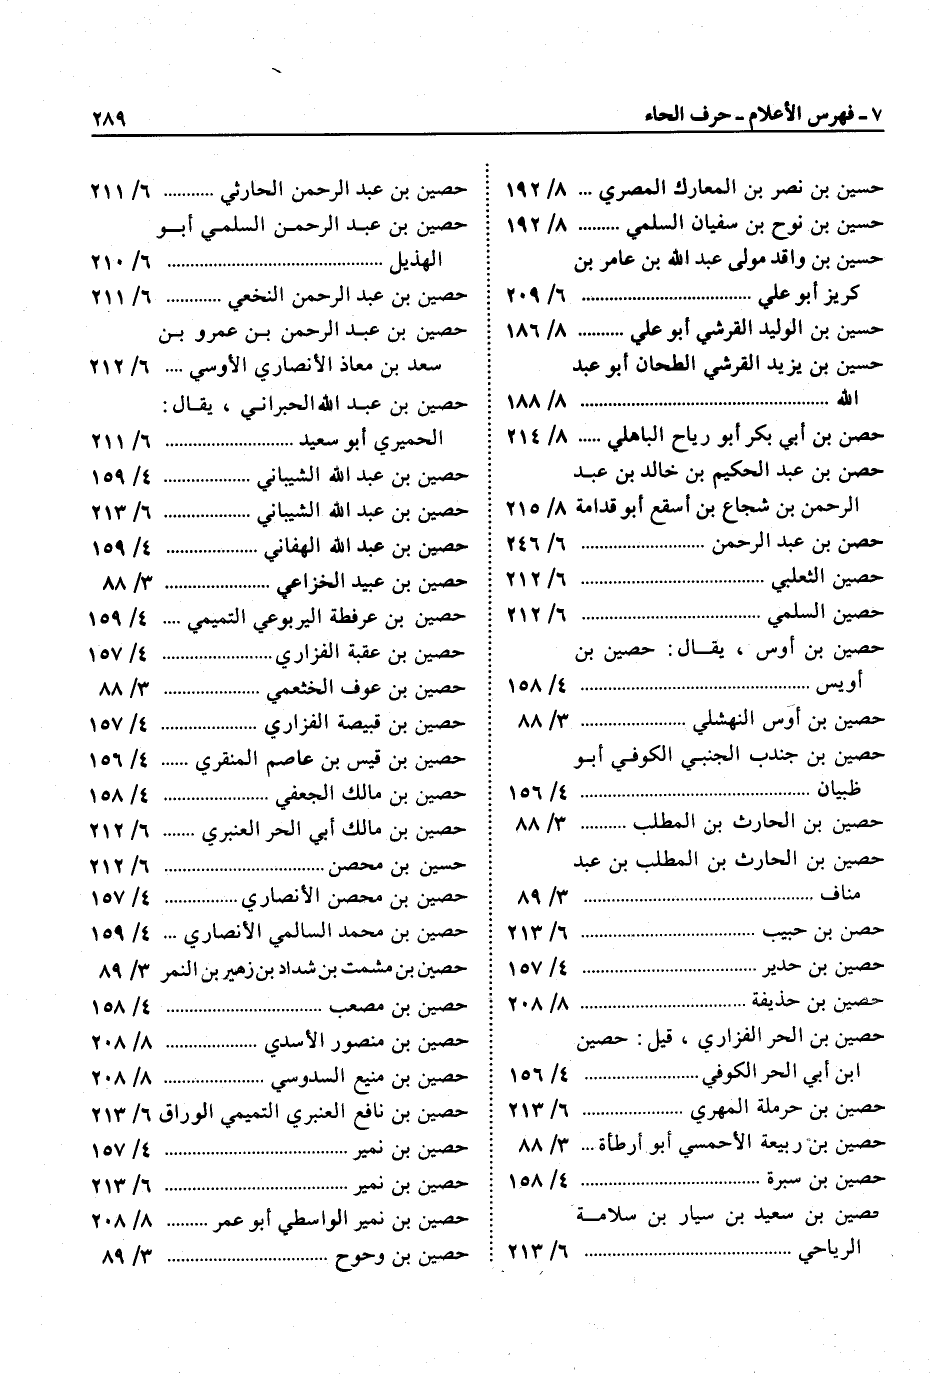 ٧ ـ فهرس الأعلام ـ حرف الحاء
٢٨٩
حسين بن نصر بن المعارك المصري ... ٨/ ١٩٢
حسين بن نوح بن سفيان السلمي ......... ٨/ ١٩٢
حسين بن واقد مولى عبد الله بن عامر بن
كريز أبو علي .................................... ٦/ ٢٠٩
حسين بن الوليد القرشي أبو علي .......... ٨/ ١٨٦
حسين بن يزيد القرشي الطحان أبو عبد
الله ..................................................... ٨/ ١٨٨
حصن بن أبي بكر أبو رياح الباهلي ..... ٨/ ٢١٤
حصن بن عبد الحكيم بن خالد بن عبد
الرحمن بن شجاع بن أسقع أبو قدامة ٨/ ٢١٥
حصن بن عبد الرحمن ........................... ٦/ ٢٤٦
حصين الثعلبي ........................................ ٦/ ٢١٢
حصين السلمي ....................................... ٦/ ٢١٢
حصين بن أوس ، يقال : حصين بن
أويس ................................................. ٤/ ١٥٨
حصين بن أوس النهشلي ....................... ٣/ ٨٨
حصين بن جندب الجنبي الكوفي أبو
ظبيان ................................................. ٤/ ١٥٦
حصين بن الحارث بن المطلب .......... ٣/ ٨٨
حصين بن الحارث بن المطلب بن عبد
مناف .................................................. ٣/ ٨٩
حصن بن حبيب ...................................... ٦/ ٢١٣
حصين بن حدير ...................................... ٤/ ١٥٧
حصين بن حذيفة .................................... ٨/ ٢٠٨
حصين بن الحر الفزاري ، قيل : حصين
ابن أبي الحر الكوفي ......................... ٤/ ١٥٦
حصين بن حرملة المهري ...................... ٦/ ٢١٣
حصين بن ربيعة الأحمسي أبو أرطأة ... ٣/ ٨٨
حصين بن سبرة ....................................... ٤/ ١٥٨
حصين بن سعيد بن سيار بن سلامة
الرياحي ............................................. ٦/ ٢١٣
حصين بن عبد الرحمن الحارثي ........... ٦/ ٢١١
حصين بن عبد الرحمن السلمي أبو
الهذيل ............................................... ٦/ ٢١٠
حصين بن عبد الرحمن النخعي ............ ٦/ ٢١١
حصين بن عبد الرحمن بن عمرو بن
سعد بن معاذ الأنصاري الأوسي .... ٦/ ٢١٢
حصين بن عبد الله الحبراني ، يقال :
الحميري أبو سعيد ............................ ٦/ ٢١١
حصين بن عبد الله الشيباني ................... ٤/ ١٥٩
حصين بن عبد الله الشيباني ................... ٦/ ٢١٣
حصين بن عبد الله الهفاني .................... ٤/ ١٥٩
حصين بن عبيد الخزاعي ....................... ٣/ ٨٨
حصين بن عرفطة اليربوعي التميمي .... ٤/ ١٥٩
حصين بن عقبة الفزاري ........................ ٤/ ١٥٧
حصين بن عوف الخثعمي ..................... ٣/ ٨٨
حصين بن قبيصة الفزاري ..................... ٤/ ١٥٧
حصين بن قيس بن عاصم المنقري ...... ٤/ ١٥٦
حصين بن مالك الجعفي ....................... ٤/ ١٥٨
حصين بن مالك أبي الحر العنبري ....... ٦/ ٢١٢
حسين بن محصن ................................... ٦/ ٢١٢
حصين بن محصن الأنصاري ................ ٤/ ١٥٧
حصين بن محمد السالمي الأنصاري ... ٤/ ١٥٩
حصين بن مشمت بن شداد بن زهير بن النمر ٣/ ٨٩
حصين بن مصعب .................................. ٤/ ١٥٨
حصين بن منصور الأسدي .................... ٨/ ٢٠٨
حصين بن منيع السدوسي ...................... ٨/ ٢٠٨
حصين بن نافع العنبري التميمي الوراق ٦/ ٢١٣
حصين بن نمير ........................................ ٤/ ١٥٧
حصين بن نمير ........................................ ٦/ ٢١٣
حصين بن نمير الواسطي أبو عمر ......... ٨/ ٢٠٨
حصين بن وحوح ................................... ٣/ ٨٩